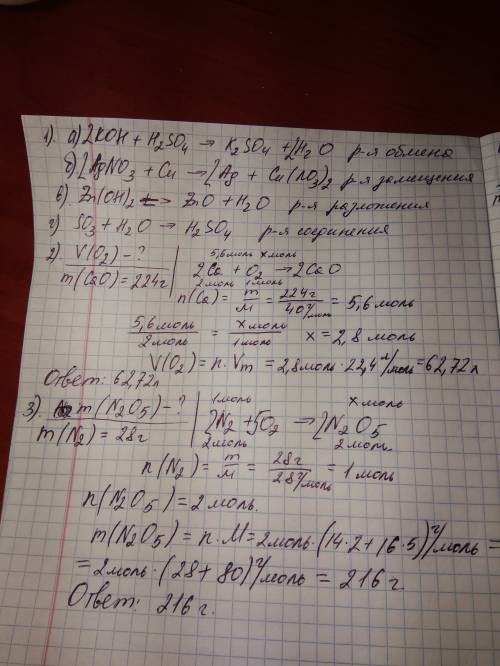 1). а) 2KOH + H₂SO₄ → K₂SO₄ + 2H₂O р-я обмена
б) 2AgNO₃ + Cu → 2Ag + Cu(NO₃)₂ р-я замещения
в) Zn(OH)₂ → ZnO + H₂O р-я разложения
г) SO₃ + H₂O → H₂SO₄ р-я соединения
2) V(O₂) - ? 5,6моль x моль
m(CaO) = 224г 2Ca + O₂ → 2CaO
2моль 1моль
n(Ca) = m/M = 224г/40г/моль = 5,6 моль
5,6моль/2моль = xмоль/1моль x = 2,8 моль
V(O₂) = n · Vm = 2,8моль · 22,4 л/моль = 62,72 л
Ответ: 62,72л
3). m(N₂O₅) - ? 1моль x моль
m(N₂) = 28г 2N₂ + 5O₂ → 2N₂O₅
2моль 2моль.
n(N₂) = m/M = 28г/28г/моль = 1 моль
n(N₂O₅) = 2 моль.
m(N₂O₅) = n · M = 2моль · (14·2 + 16·5) г/моль =
= 2моль · (28 + 80) г/моль = 216 г
Ответ: 216 г.